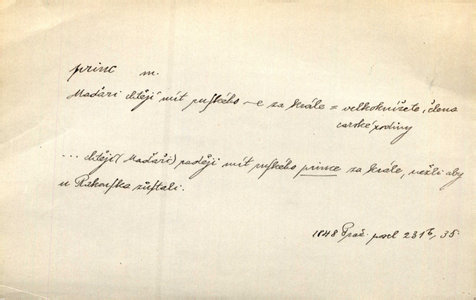 princ m.
Maďaři chtějí mít ruského ~e za krále = velkoknížete, člena
carské rodiny
... chtějí (Maďaři) raději mít ruského prince za krále, nežli aby
u Rakouska zůstali.
1848 Praž. posl 231 , 35.